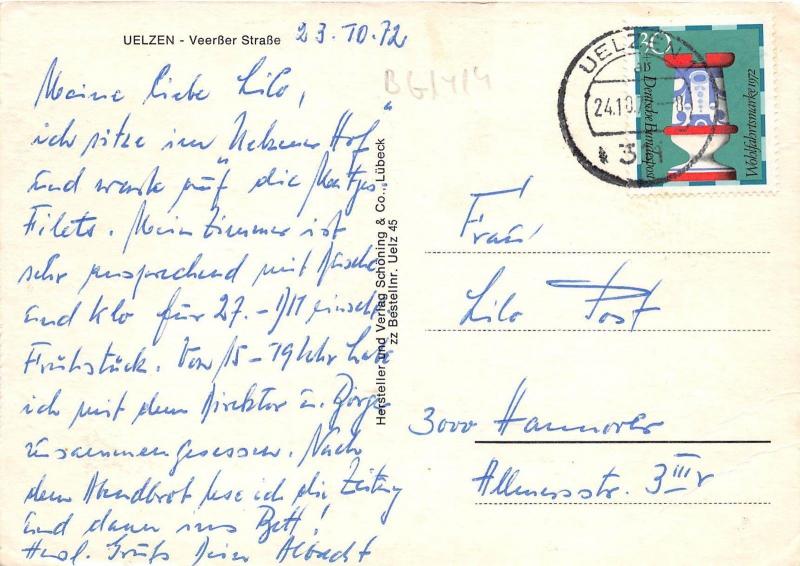 UELZEN - Veerßer Straße
23.10.72
Meine liebe Lilo,
ich sitze im Uelzener Hof
und warte "auf" die Matjes
Filets. Mein Zimmer ist
sehr ansprechend mit Dusche
und Klo für 27.- DM einschl.
Frühstück. Von 15-19 Uhr habe
ich mit dem Direktor u.
zusammengesessen. Nach
dem Abendbrot lese ich die Zeitung
und dann ins Bett!
Herzl. Gruß Dein Albrecht
Hersteller und Verlag Schöning & Co., Lübeck
zz Bestellnr. Uelz 45
BG/4/4
UELZEN
24.10.7
30
Deutsche Bundespost
Wohlfahrtsmarke 1972
Frau
Lilo Post
3000 Hannover
Allmersstr. 3 III r